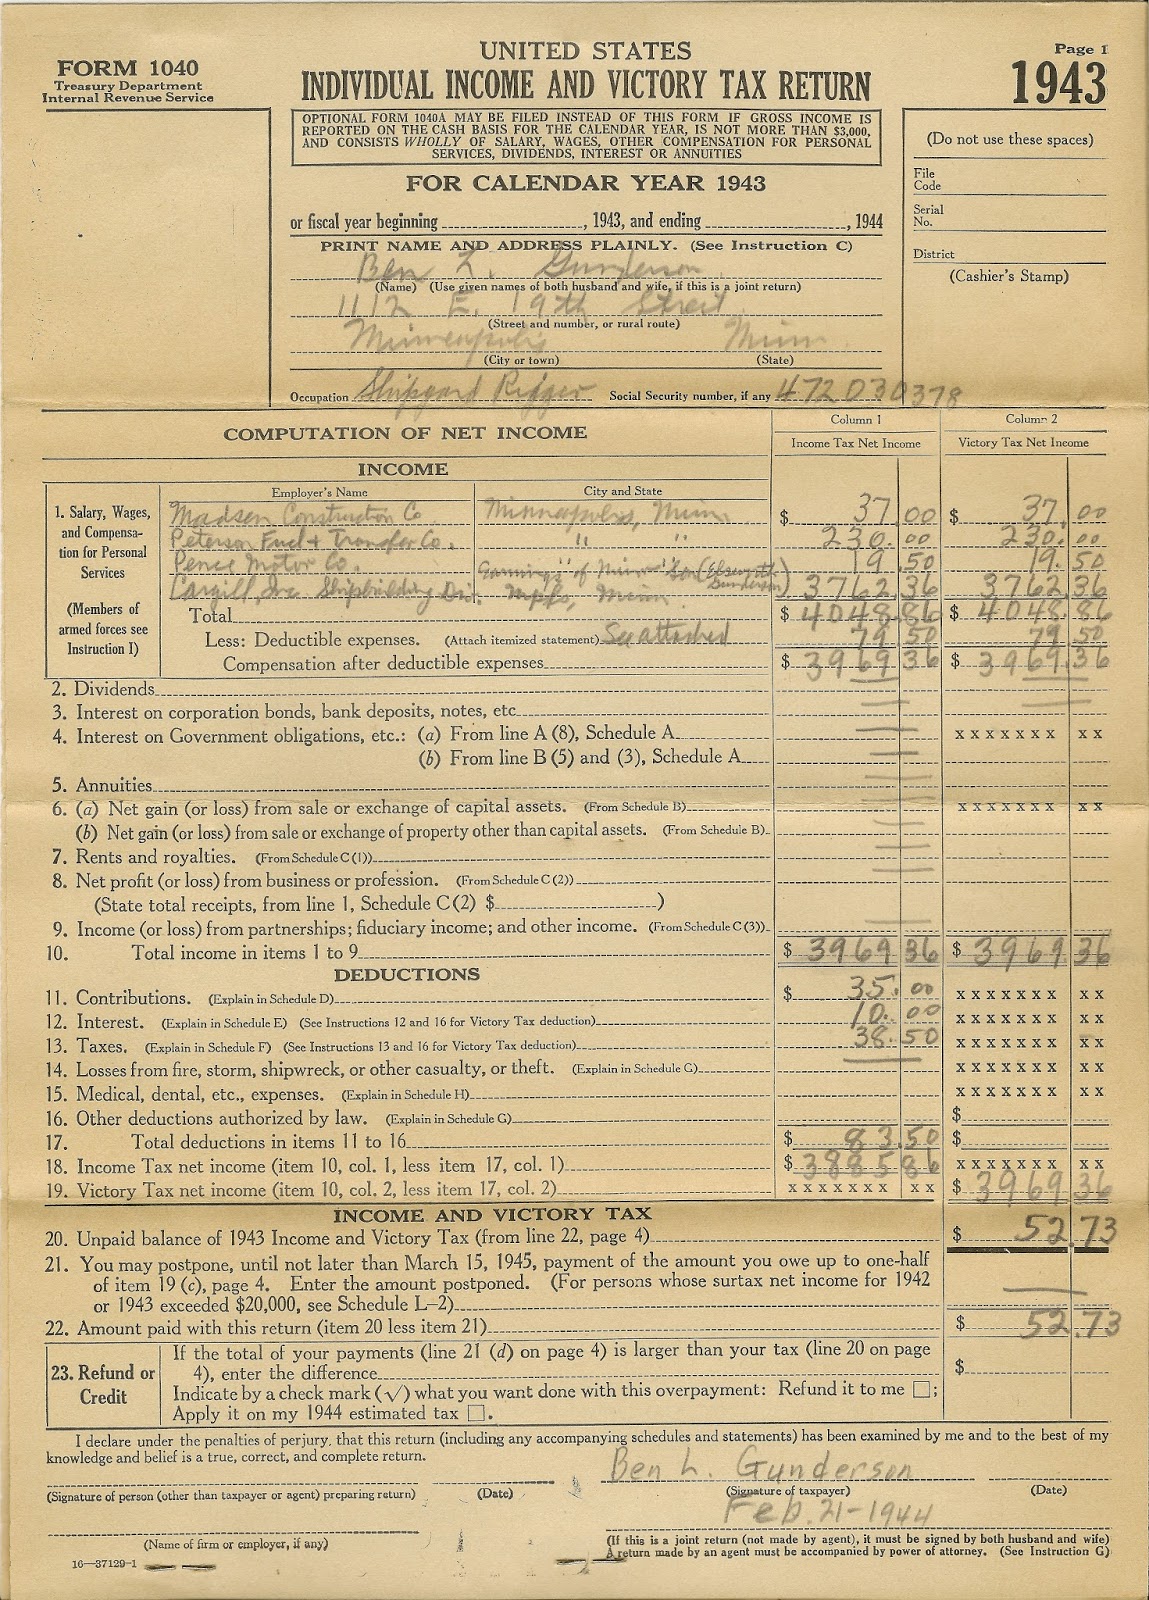 UNITED STATES
Page 1
FORM 1040
Treasury Department
Internal Revenue Service
INDIVIDUAL INCOME AND VICTORY TAX RETURN
1943
OPTIONAL FORM 1040A MAY BE FILED INSTEAD OF THIS FORM IF GROSS INCOME IS
REPORTED ON THE CASH BASIS FOR THE CALENDAR YEAR, IS NOT MORE THAN $3,000,
AND CONSISTS WHOLLY OF SALARY, WAGES, OTHER COMPENSATION FOR PERSONAL
SERVICES, DIVIDENDS, INTEREST OR ANNUITIES
(Do not use these spaces)
File
Code
Serial
No.
District
(Cashier's Stamp)
FOR CALENDAR YEAR 1943
or fiscal year beginning , 1943, and ending , 1944
PRINT NAME AND ADDRESS PLAINLY. (See Instruction C)
Ben L. Gunderson
(Name) (Use given names of both husband and wife, if this is a joint return)
1112 E. 19th Street
(Street and number, or rural route)
Minneapolis Minn.
(City or town) (State)
Occupation Shipyard Rigger Social Security number, if any 472030378
COMPUTATION OF NET INCOME
Column 1 Column 2
Income Tax Net Income Victory Tax Net Income
INCOME
Employer's Name City and State
1. Salary, Wages,
and Compensa-
tion for Personal
Services
(Members of
armed forces see
Instruction I)
Madsen Construction Co Minneapolis, Minn. $ 37.00 $ 37.00
Peterson Fuel + Transfer Co. " " 230.00 230.00
Pence Motor Co. Earnings of Minor Son (Gunderson) 19.50 19.50
Cargill, Inc. Shipbuilding Div. Mpls, Minn. 3762 36 3762 36
Total $ 4048.86 $ 4048.86
Less: Deductible expenses. (Attach itemized statement) See attached 79 50 79 50
Compensation after deductible expenses $ 3969 36 $ 3969.36
2. Dividends
3. Interest on corporation bonds, bank deposits, notes, etc
4. Interest on Government obligations, etc.: (a) From line A (8), Schedule A x x x x x x x x x
(b) From line B (5) and (3), Schedule A
5. Annuities
6. (a) Net gain (or loss) from sale or exchange of capital assets. (From Schedule B) x x x x x x x x x
(b) Net gain (or loss) from sale or exchange of property other than capital assets. (From Schedule B)
7. Rents and royalties. (From Schedule C (1))
8. Net profit (or loss) from business or profession. (From Schedule C (2))
(State total receipts, from line 1, Schedule C (2) $ )
9. Income (or loss) from partnerships; fiduciary income; and other income. (From Schedule C (3))
10. Total income in items 1 to 9 $ 3969 36 $ 3969.36
DEDUCTIONS
11. Contributions. (Explain in Schedule D) $ 35.00 x x x x x x x x x
12. Interest. (Explain in Schedule E) (See Instructions 12 and 16 for Victory Tax deduction) 10.00 x x x x x x x x x
13. Taxes. (Explain in Schedule F) (See Instructions 13 and 16 for Victory Tax deduction) 38.50 x x x x x x x x x
14. Losses from fire, storm, shipwreck, or other casualty, or theft. (Explain in Schedule G) x x x x x x x x x
15. Medical, dental, etc., expenses. (Explain in Schedule H) x x x x x x x x x
16. Other deductions authorized by law. (Explain in Schedule G) $
17. Total deductions in items 11 to 16 $ 83.50 $
18. Income Tax net income (item 10, col. 1, less item 17, col. 1) $ 3885 86 x x x x x x x x x
19. Victory Tax net income (item 10, col. 2, less item 17, col. 2) x x x x x x x x x $ 3969 36
INCOME AND VICTORY TAX
20. Unpaid balance of 1943 Income and Victory Tax (from line 22, page 4) $ 52.73
21. You may postpone, until not later than March 15, 1945, payment of the amount you owe up to one-half
of item 19 (c), page 4. Enter the amount postponed. (For persons whose surtax net income for 1942
or 1943 exceeded $20,000, see Schedule L-2)
22. Amount paid with this return (item 20 less item 21) $ 52.73
23. Refund or
Credit
If the total of your payments (line 21 (d) on page 4) is larger than your tax (line 20 on page
4), enter the difference $
Indicate by a check mark (√) what you want done with this overpayment: Refund it to me □;
Apply it on my 1944 estimated tax □.
I declare under the penalties of perjury, that this return (including any accompanying schedules and statements) has been examined by me and to the best of my
knowledge and belief is a true, correct, and complete return.
Ben L. Gunderson
(Signature of person (other than taxpayer or agent) preparing return) (Date) (Signature of taxpayer) (Date)
Feb. 21-1944
(Name of firm or employer, if any)
(If this is a joint return (not made by agent), it must be signed by both husband and wife)
A return made by an agent must be accompanied by power of attorney. (See Instruction G)
16—37129-1